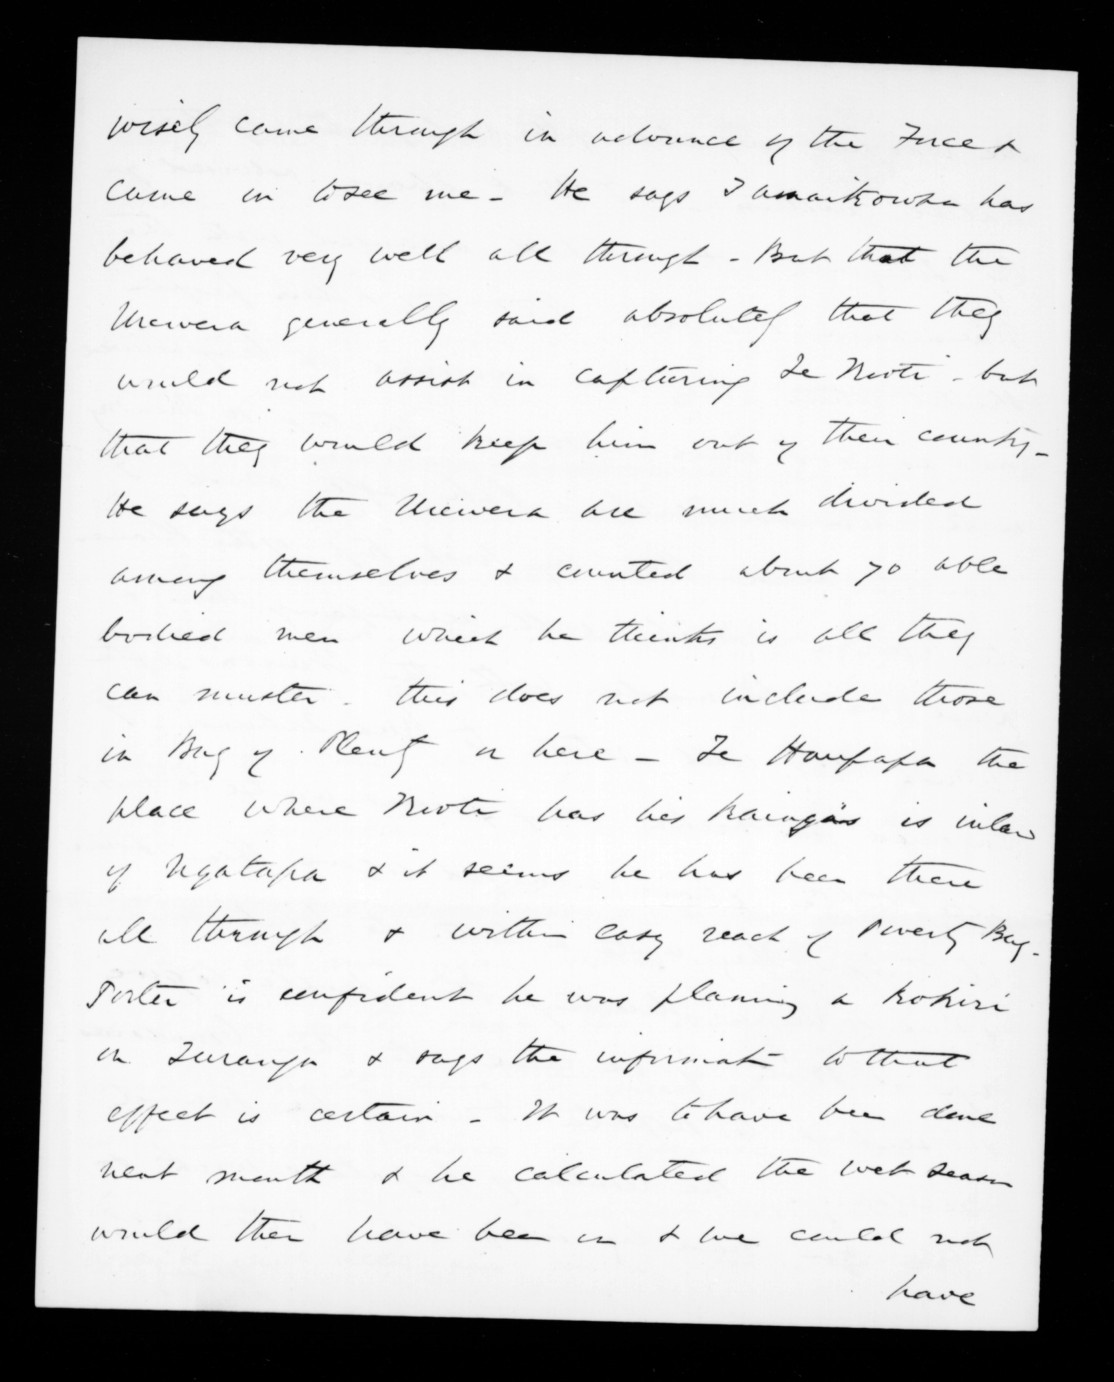 wisely came through in advance of the Force &
came in to see me - He says Tamaikowha has
behaved very well all through - But that the
Urewera generally said absolutely that they
would not assist in capturing Te Kooti - but
that they would keep him out of their country -
He says the Urewera are much divided
among themselves & counted about 70 able
bodied men which he thinks is all they
can muster. this does not include those
in Bay of Plenty or here - Te Houpapa the
place where Kooti has his Kaingas is inland
of Ngatapa & it seems he has been there
all through & within easy reach of Poverty Bay -
Porter is confident he was planning a Kokiri
on Turanga & says the informatn to that
effect is certain - It was to have been done
next month & he calculated the wet season
would then have been in & we could not
have